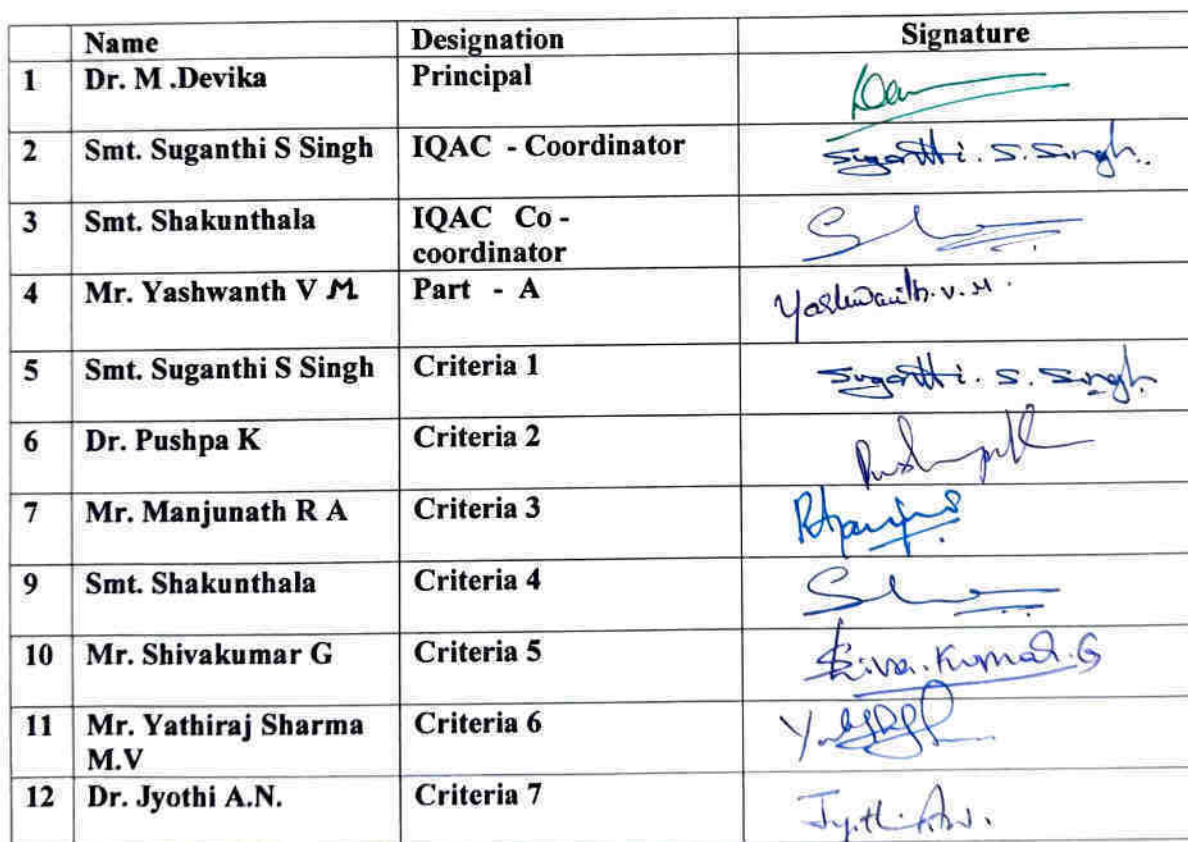 Name Designation Signature
1 Dr. M .Devika Principal
2 Smt. Suganthi S Singh IQAC - Coordinator Suganthi . S. Singh.
3 Smt. Shakunthala IQAC Co -
coordinator
4 Mr. Yashwanth V M Part - A Yashwanth. v. M .
5 Smt. Suganthi S Singh Criteria 1 Suganthi . S. Singh
6 Dr. Pushpa K Criteria 2
7 Mr. Manjunath R A Criteria 3
9 Smt. Shakunthala Criteria 4
10 Mr. Shivakumar G Criteria 5 Shiva.Kumar.G
11 Mr. Yathiraj Sharma Criteria 6
M.V
12 Dr. Jyothi A.N. Criteria 7 Jyothi A.N.